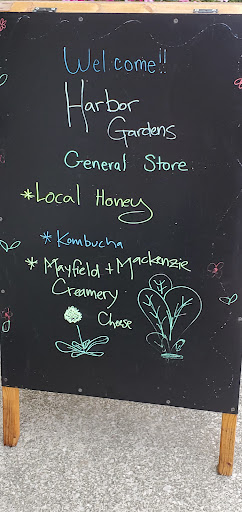 Welcome!!
Harbor
Gardens
General Store
*Local Honey
*Kombucha
*Mayfield + Mackenzie
Creamery
Cheese